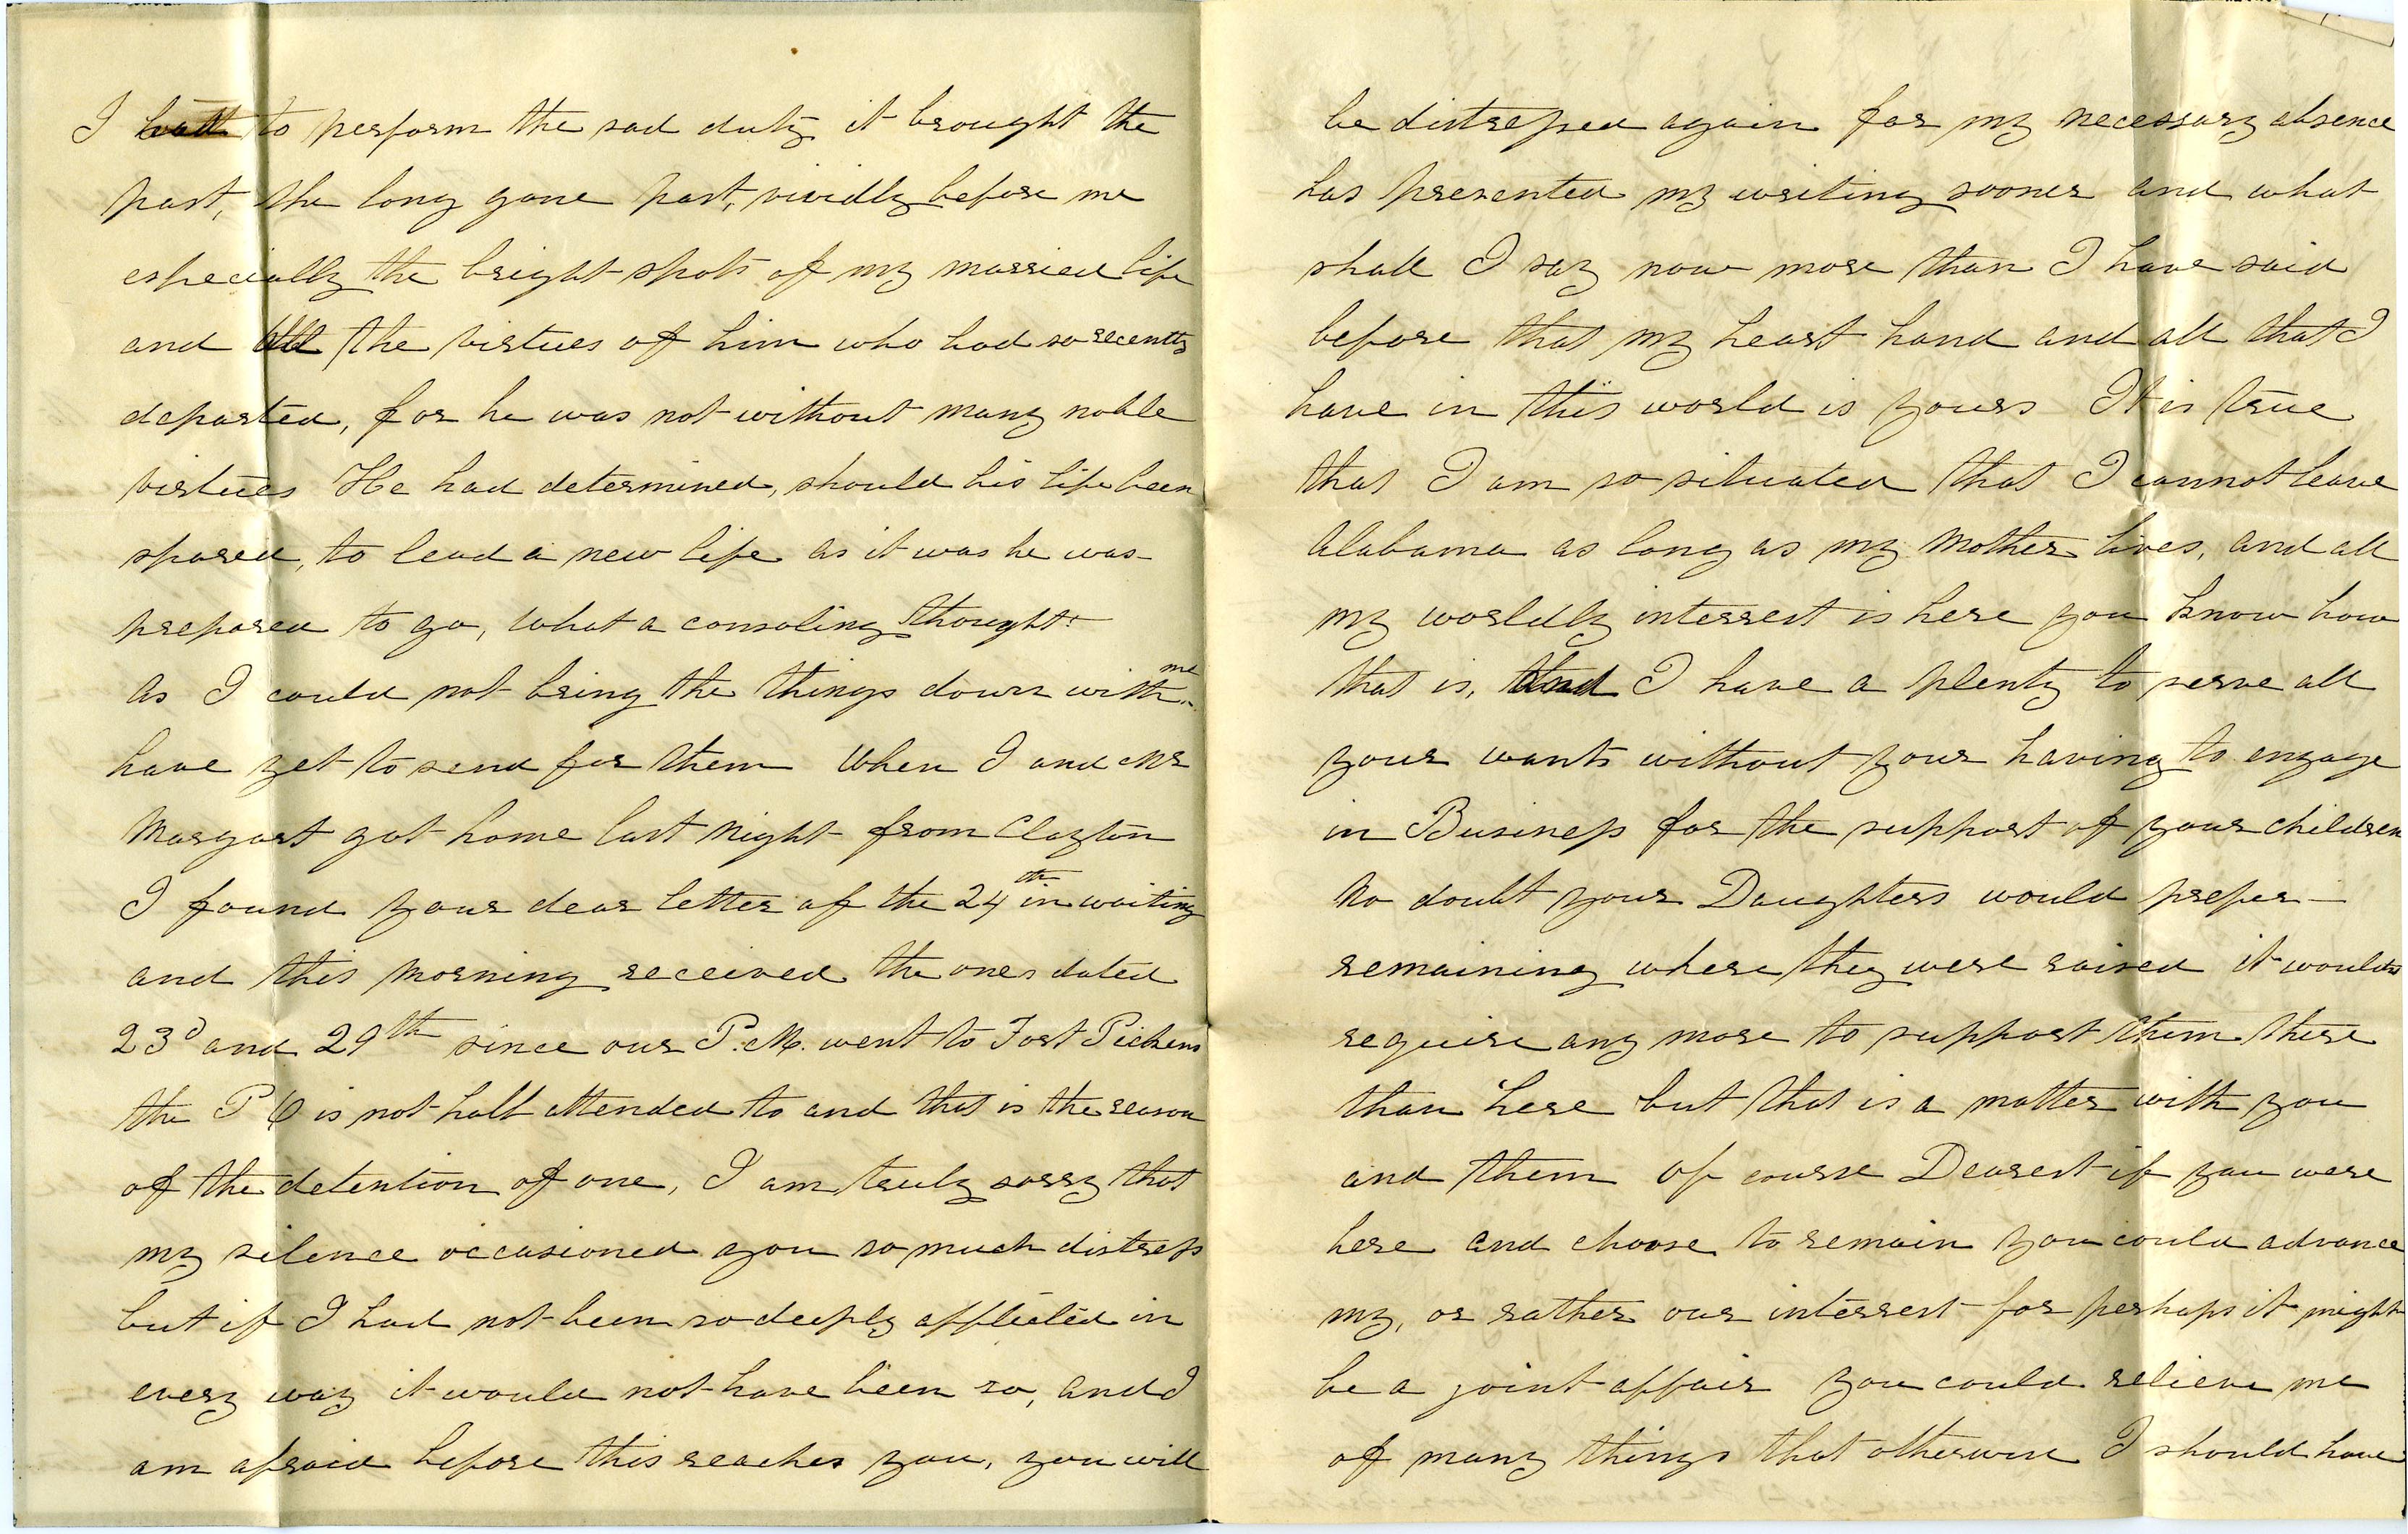 I had to perform the sad duty it brought the
past, the long gone past, vividly before me
especially the bright spots of my married life
and all the virtues of him who had so recently
departed, for he was not without many noble
virtues He had determined, should his life been
spared, to lead a new life as it was he was
prepared to go, what a consoling thought!
As I could not bring the things down with me
have yet to send for them When I and Mr
Margart got home last night from Clayton
I found your dear letter of the 24th in waiting
and this morning received the ones dated
23d and 29th since our P. M. went to Fort Pickens
the P O is not half attended to and that is the reason
of the detention of one, I am truly sorry that
my silence occasioned you so much distress
but if I had not been so deeply afflicted in
every way it would not have been so, and I
am afraid before this reaches you, you will
be distressed again for my necessary absence
has prevented my writing sooner and what
shall I say now more than I have said
before that my heart hand and all that I
have in this world is yours It is true
that I am so situated that I cannot leave
Alabama as long as my Mother lives, and all
my worldly interrest is here you know how
that is, and I have a plenty to serve all
your wants without your having to engage
in Business for the support of your children
No doubt your Daughters would prefer
remaining where they were raised it would
require any more to support them there
than here but that is a matter with you
and them Of course Dearest if you were
here and choose to remain you could advance
my, or rather our interrest for perhaps it might
be a joint affair you could relieve me
of many things that otherwise I should have